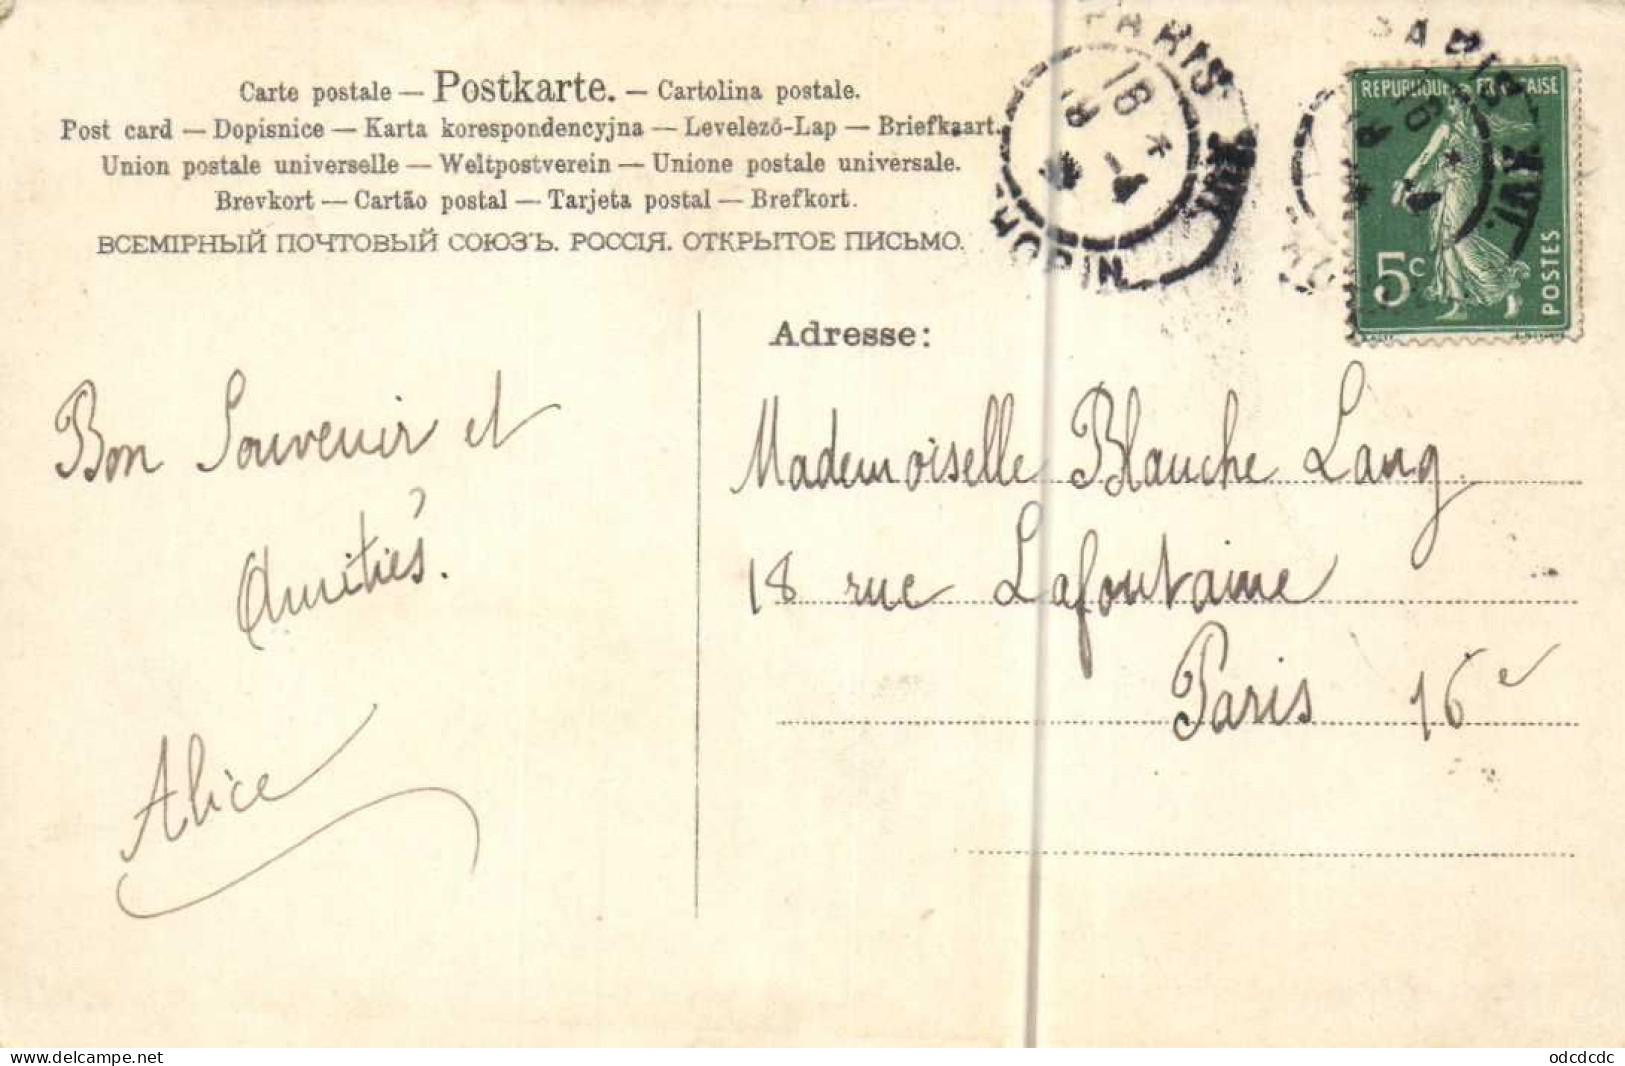 Carte postale — Postkarte. — Cartolina postale.
Post card — Dopisnice — Karta korespondencyjna — Levelező-Lap — Briefkaart.
Union postale universelle — Weltpostverein — Unione postale universale.
Brevkort — Cartão postal — Tarjeta postal — Brefkort.
ВСЕМІРНЫЙ ПОЧТОВЫЙ СОЮЗЪ. РОССІЯ. ОТКРЫТОЕ ПИСЬМО.
PARIS XVI
REPUBLIQUE FRANÇAISE
5c
POSTES
Bon Souvenir et
Amitiés.
Alice
Adresse:
Mademoiselle Blanche Lang
18 rue Lafontaine
Paris 16e
www.delcampe.net
odcdcdc